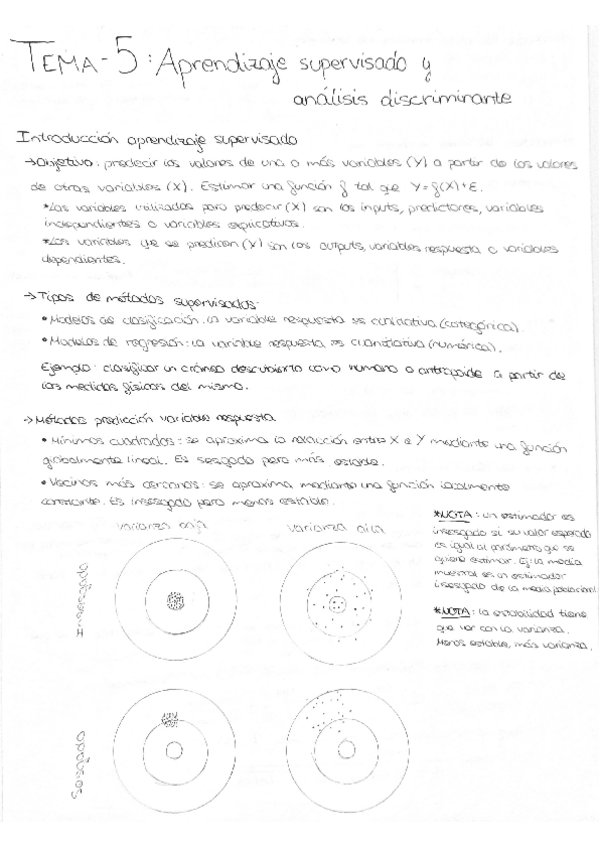 TEMA-5: Aprendizaje supervisado y
análisis discriminante
Introducción aprendizaje supervisado
→Objetivo: predecir los valores de una o más variables (Y) a partir de los valores
de otras variables (X). Estimar una función f tal que Y=f(X)+ε.
*Las variables utilizadas para predecir (X) son los inputs, predictores, variables
independientes o variables explicativas.
*Las variables que se predicen (Y) son los outputs, variables respuesta o variables
dependientes.
→Tipos de métodos supervisados:
•Modelos de clasificación: la variable respuesta es cualitativa (categórica).
•Modelos de regresión: la variable respuesta es cuantitativa (numérica).
Ejemplo: clasificar un cráneo descubierto como humano o antropoide a partir de
las medidas físicas del mismo.
→Métodos predicción variable respuesta
•Mínimos cuadrados: se aproxima la relación entre X e Y mediante una función
globalmente lineal. Es sesgado pero más estable.
•Vecinos más cercanos: se aproxima mediante una función localmente
constante. Es insesgado pero menos estable.
varianza baja varianza alta
*NOTA: un estimador es
insesgado si su valor esperado
es igual al parámetro que se
quiere estimar. Ej: la media
muestral es un estimador
insesgado de la media poblacional
Insesgado
*NOTA: la estabilidad tiene
que ver con la varianza.
Menos estable, más varianza.
sesgado